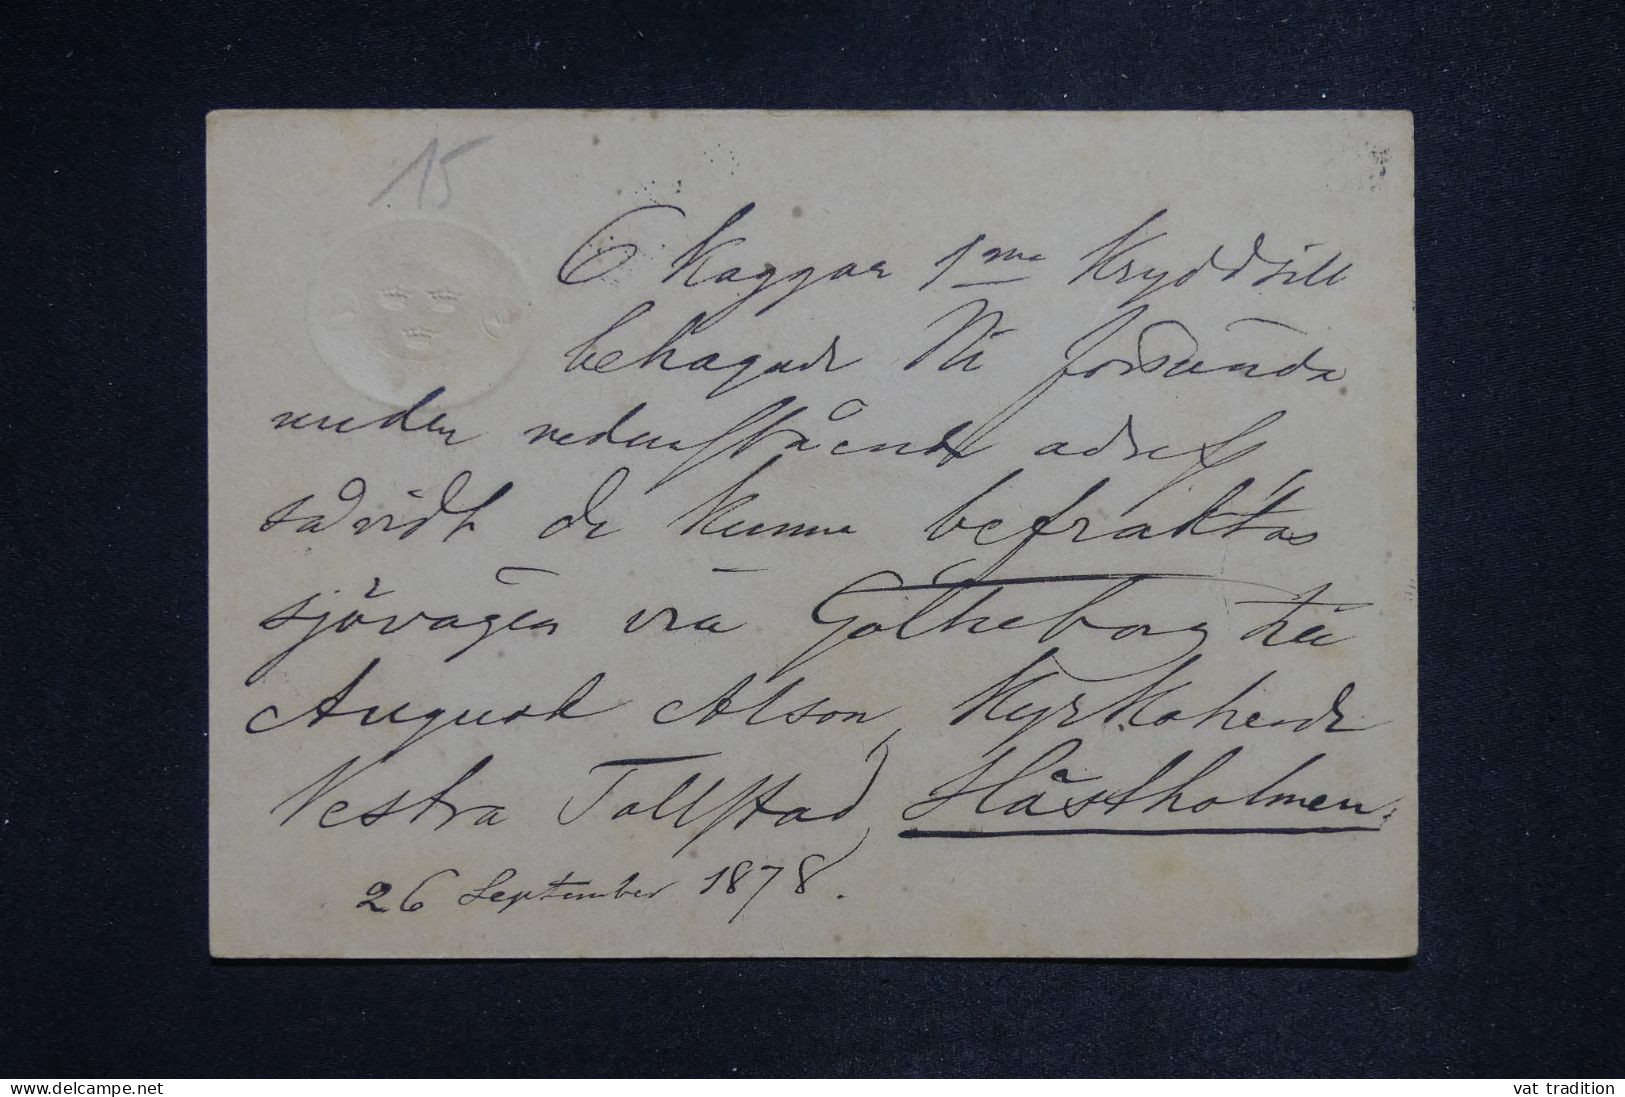 15
6 Kaggar 1ma Kryddsill
behagade Ni försända
under nedanstående adress
såvidt de kunna befraktas
sjövägen via Götheborg till
August Alson, Kyrkoherde
Vestra Tollstad, Hästholmen.
26 September 1878.
www.delcampe.net
vat tradition